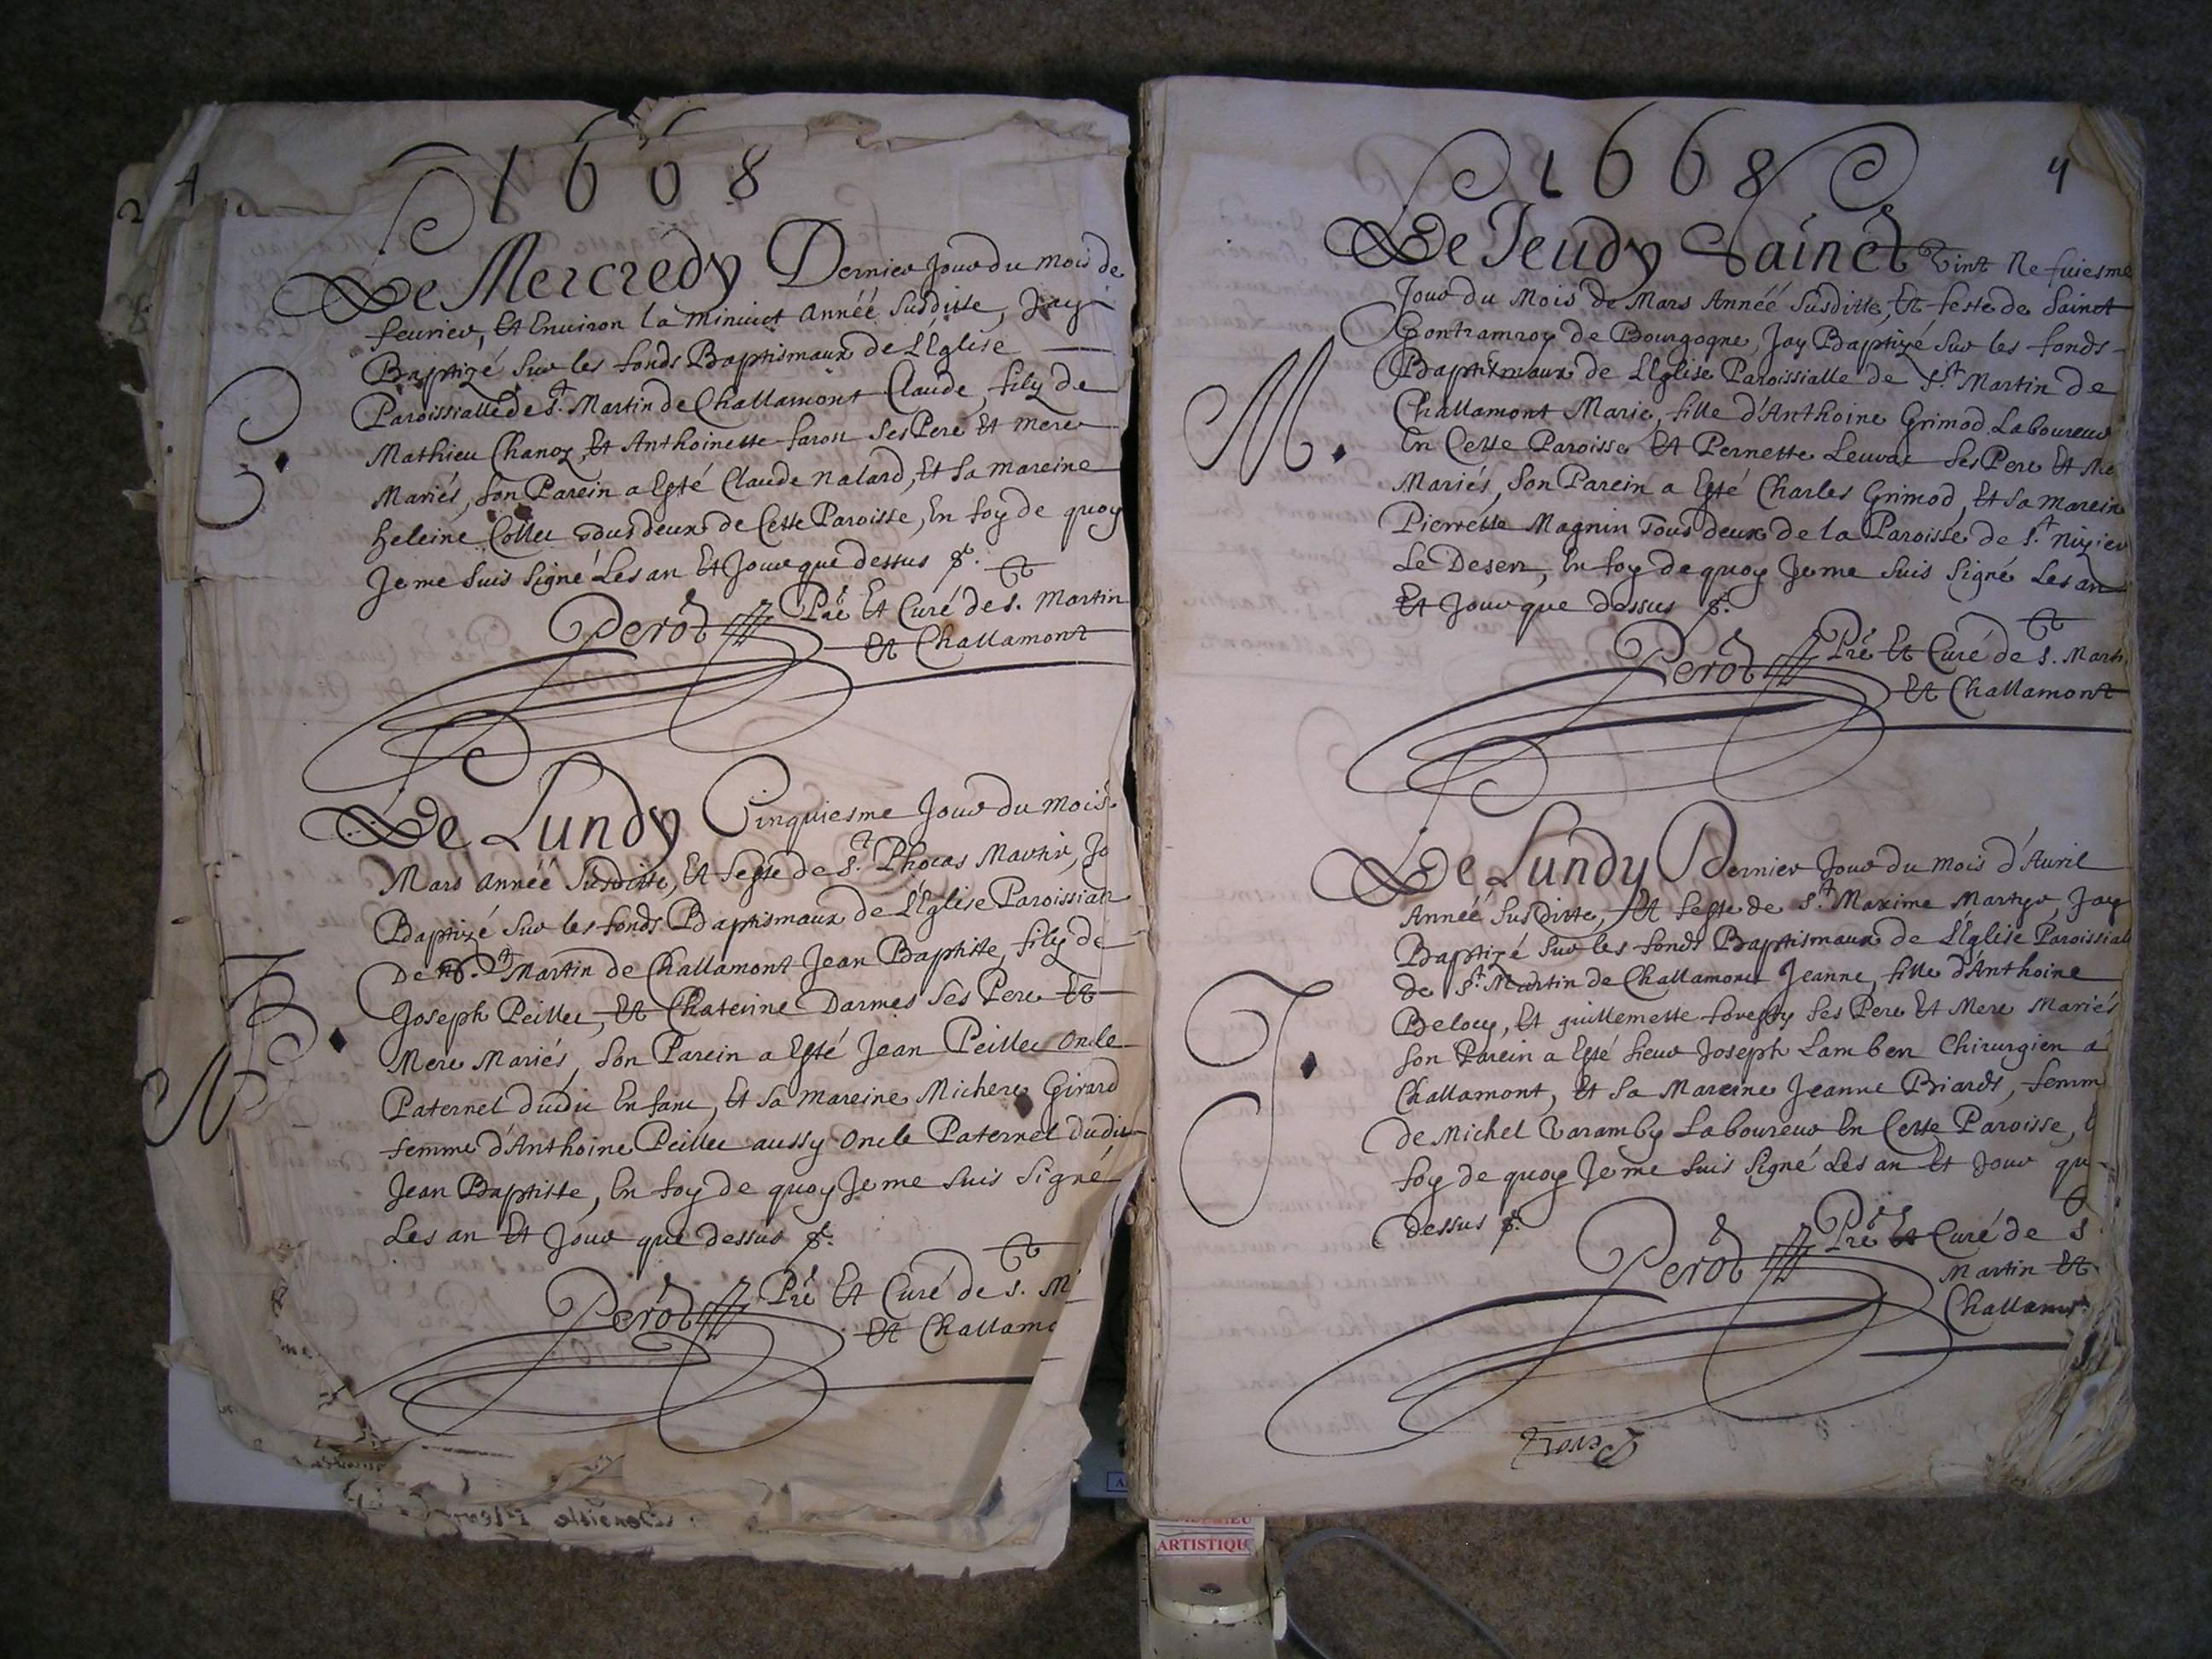 1668
Le Mercredy Dernier Jour du mois de
feurier, Et Enuiron la minuict Année Susditte, Jay
Baptizé Sur les fonds Baptismaux de L'Eglise
Paroissialle de St. Martin de Challamont Claude, filz de
Mathieu Chanoz, Et Anthoinette faron Ses Pere Et mere
Mariés, Son Parein a Esté Claude nalard, Et Sa mareine
heleine Collet tous deux de Cette Paroisse, En foy de quoy
Je me Suis Signé Les an Et Jour que dessus
Perot Pre Et Curé de S. Martin
Et Challamont
C
Le Lundy Cinquiesme Jour du mois
Mars année Susditte, Et feste de St. Phocas Martir, Ja
Baptizé Sur les fonds Baptismaux de L'Eglise Paroissiall
De St Martin de Challamont Jean Baptiste, filz de
Joseph Peillet, Et Chaterine Darmes Ses Pere Et
Mere Mariés, Son Parein a Esté Jean Peillet Oncle
Paternel dudit Enfant, Et Sa mareine Michere Girard
femme d'Anthoine Peillet aussy Oncle Paternel dudit
Jean Baptiste, En foy de quoy Je me Suis Signé
Les an Et Jour que dessus
Perot Pre Et Curé de S. M
Et Challamo
1668
4
Le Jeudy Sainct Vint Nefuiesme
Jour du Mois de Mars Année Susditte, Et feste de Sainct
Gontramroy de Bourgogne, Jay Baptizé Sur les fonds
Baptismaux de L'Eglise Paroissialle de St. Martin de
Challamont Marie, fille d'Anthoine Grimod Laboureur
En Cette Paroisse Et Pernette Ses Pere Et Me
Mariés, Son Parein a Esté Charles Grimod, Et Sa marein
Pierrette Magnin Tous deux de la Paroisse de St. Nizier
Le Desert, En foy de quoy Je me Suis Signé Les an
Et Jour que dessus
Perot Pre Et Curé de S. Marti
Et Challamont
M
Le Lundy Dernier Jour du mois d'Auril
Année Susditte, Et feste de St. Maxime Martyr, Jay
Baptizé Sur les fonds Baptismaux de L'Eglise Paroissiall
de St. Martin de Challamont Jeanne, fille d'Anthoine
Belouz, Et guillemette Ses Pere Et Mere Mariés
Son Parein a Esté Sieur Joseph Lambert Chirurgien a
Challamont, Et Sa Mareine Jeanne Biard, femm
de Michel Varamby Laboureur En Cette Paroisse, E
foy de quoy Je me Suis Signé Les an Et Jour qu
dessus
Perot Pre Et Curé de S
Martin Et
Challamt
J
ARTISTIQU